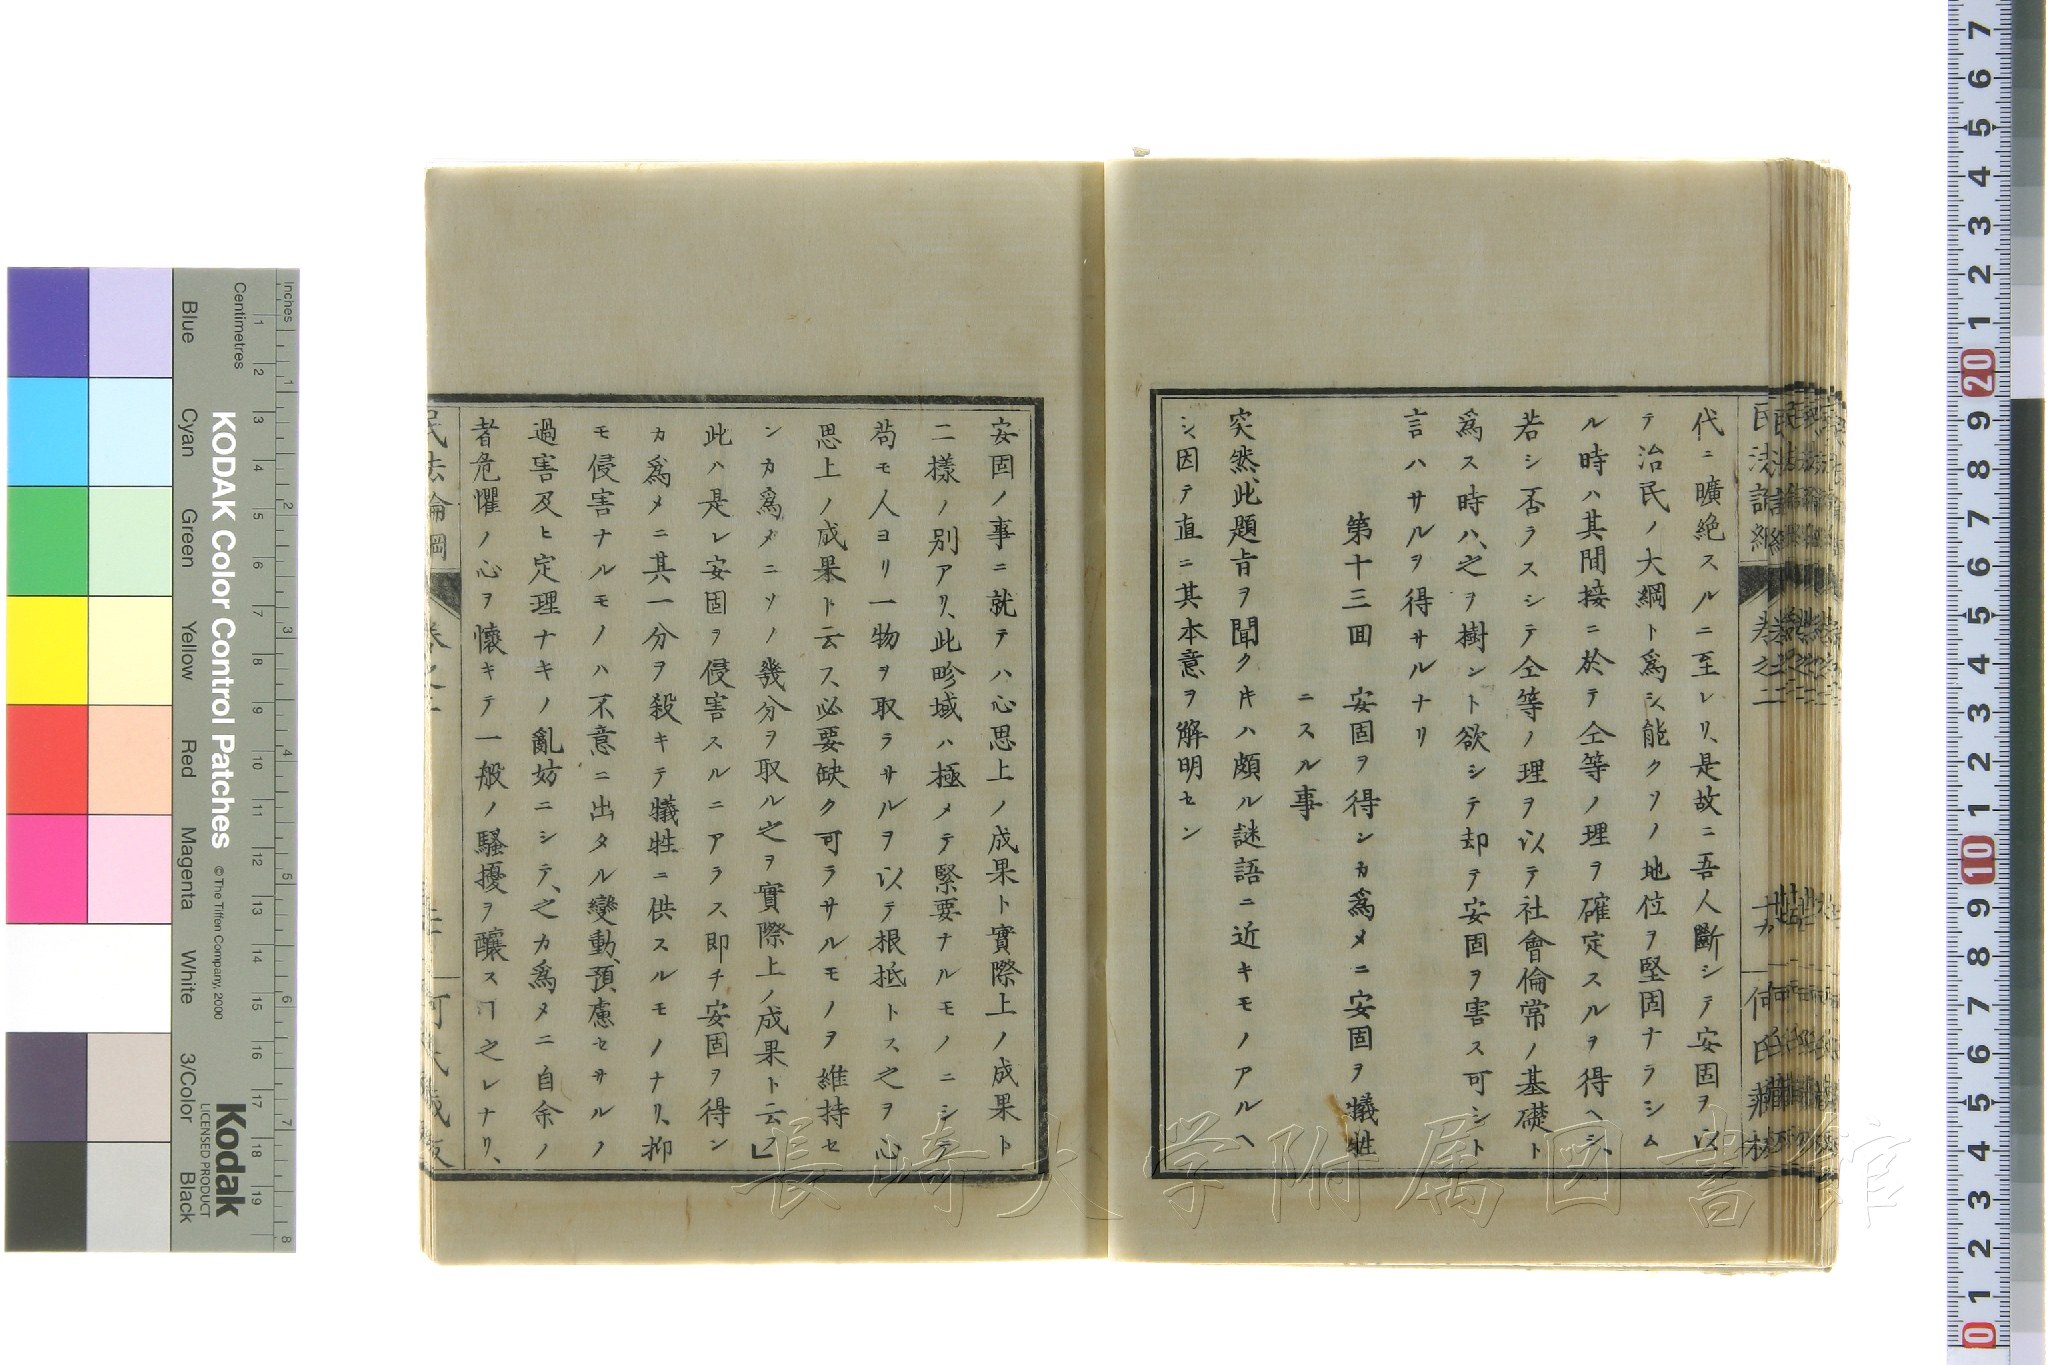 代ニ曠絶スルニ至レリ、是故ニ吾人斷シテ安固ヲ以
テ治民ノ大綱ト爲シ、能クソノ地位ヲ堅固ナラシム
ル時ハ其間接ニ於テ仝等ノ理ヲ確定スルヲ得ヘシ、
若シ否ラスシテ仝等ノ理ヲ以テ社會倫常ノ基礎ト
爲ス時ハ、之ヲ樹ント欲シテ却テ安固ヲ害ス可シト
言ハサルヲ得サルナリ
第十三囬 安固ヲ得ンカ爲メニ安固ヲ犠牲
ニスル事
突然、此題旨ヲ聞クキハ頗ル謎語ニ近キモノアルヘ
シ、因テ直ニ其本意ヲ解明セン
安固ノ事ニ就テハ心思上ノ成果ト實際上ノ成果ト
二樣ノ別アリ、此畛域ハ極メテ緊要ナルモノニシテ
苟モ人ヨリ一物ヲ取ラサルヲ以テ根抵トス、之ヲ心
思上ノ成果ト云ス、必要缺ク可ラサルモノヲ維持セ
ンカ爲メニソノ幾分ヲ取ル之ヲ實際上ノ成果ト云フ」
此ハ是レ安固ヲ侵害スルニアラス即チ安固ヲ得ン
カ爲メニ其一分ヲ殺キテ犠牲ニ供スルモノナリ、抑
モ侵害ナルモノハ不意ニ出タル變動、預慮セサルノ
過害及ヒ定理ナキノ亂妨ニシテ、之カ爲メニ自余ノ
者危懼ノ心ヲ懷キテ一般ノ騷擾ヲ釀スヿ之レナリ、
民法論綱 卷之二
何氏藏版
民法論綱 卷之二
何氏藏版
KODAK Color Control Patches
© The Tiffen Company, 2000
Kodak
LICENSED PRODUCT
Inches
Centimetres
Blue Cyan Green Yellow Red Magenta White 3/Color Black
1 2 3 4 5 6 7 8 9 10 11 12 13 14 15 16 17 18 19
1 2 3 4 5 6 7 8
7 6 5 4 3 2 1 20 9 8 7 6 5 4 3 2 1 10 9 8 7 6 5 4 3 2 1 0
長崎大学附属図書館